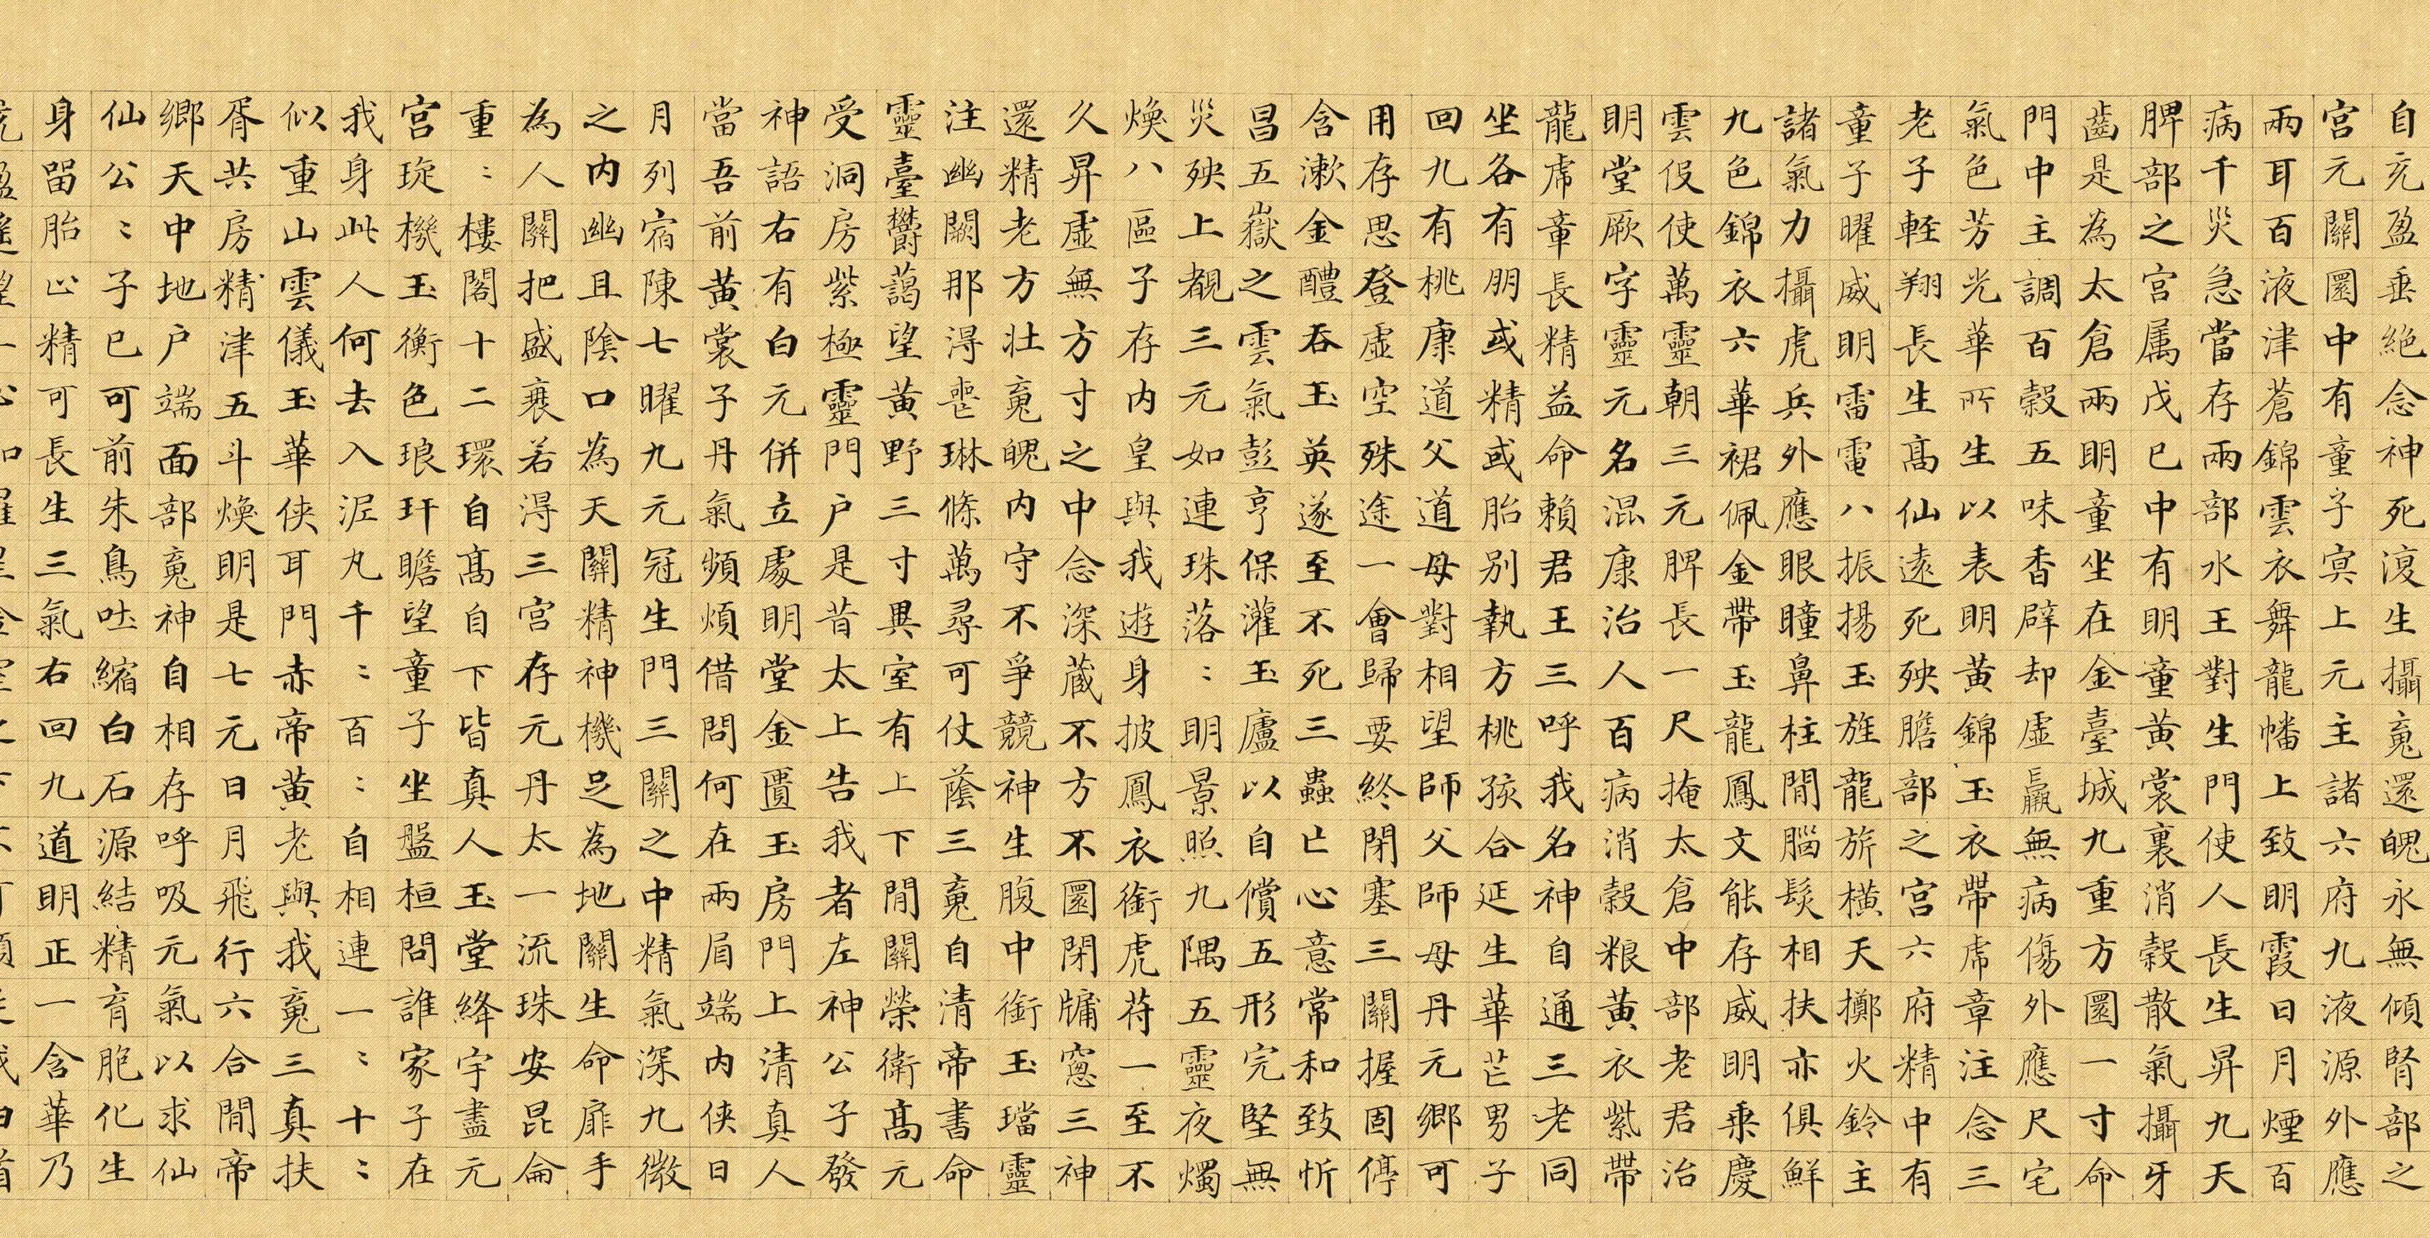 自充盈垂絕念神死復生攝魂還魄永無傾腎部之
宮元關圜中有童子冥上元主諸六府九液源外應
兩耳百液津蒼錦雲衣舞龍幡上致明霞日月煙百
病千災急當存兩部水王對生門使人長生昇九天
脾部之宮属戊己中有明童黃裳裏消穀散氣攝牙
齒是為太倉兩明童坐在金臺城九重方圜一寸命
門中主調百穀五味香辟却虛羸無病傷外應尺宅
氣色芳光華所生以表明黃錦玉衣帶虎章注念三
老子輊翔長生高仙遠死殃膽部之宮六府精中有
童子曜威明雷電八振揚玉旌龍旂橫天擲火鈴主
諸氣力攝虎兵外應眼瞳鼻柱間腦髮相扶亦俱鮮
九色錦衣六華裙佩金帶玉龍鳳文能存威明乘慶
雲伇使萬靈朝三元脾長一尺掩太倉中部老君治
明堂厥字靈元名混康治人百病消穀粮黃衣紫帶
龍虎章長精益命賴君王三呼我名神自通三老同
坐各有朋或精或胎別執方桃孩合延生華芒男子
回九有桃康道父道母對相望師父師母丹元鄉可
用存思登虛空殊途一會歸要終閉塞三關握固停
含漱金醴吞玉英遂至不死三蟲亡心意常和致忻
昌五嶽之雲氣彭亨保灌玉廬以自償五形完堅無
災殃上覩三元如連珠落〻明景照九隅五靈夜燭
煥八區子存內皇與我遊身披鳳衣銜虎苻一至不
久昇虛無方寸之中念深藏不方不圜閉牖窓三神
還精老方壮魂魄內守不爭競神生腹中銜玉璫靈
注幽闕那淂喪琳條萬尋可仗蔭三魂自清帝書命
靈臺欝藹望黃野三寸異室有上下間關榮衛高元
受洞房紫極靈門户是昔太上告我者左神公子發
神語右有白元併立處明堂金匱玉房門上清真人
當吾前黃裳子丹氣頻煩借問何在兩眉端內侠日
月列宿陳七曜九元冠生門三關之中精氣深九微
之內幽且陰口為天關精神機足為地關生命扉手
為人關把盛衰若淂三宮存元丹太一流珠安昆侖
重〻樓閣十二環自高自下皆真人玉堂絳宇盡元
宮琁機玉衡色琅玕瞻望童子坐盤桓問誰家子在
我身此人何去入泥丸千〻百〻自相連一〻十〻
似重山雲儀玉華侠耳門赤帝黃老與我魂三真扶
胥共房精津五斗煥明是七元日月飛行六合間帝
鄉天中地户端面部魂神自相存呼吸元氣以求仙
仙公〻子已可前朱鳥吐縮白石源結精育胞化生
身留胎止精可長生三氣右回九道明正一含華乃